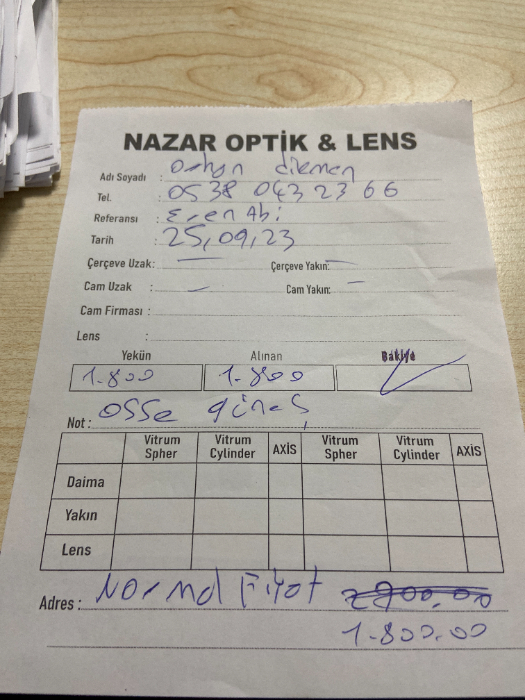 NAZAR OPTİK & LENS
Adı Soyadı : Orhan dikmen
Tel. : 0538 043 23 66
Referansı : Eren Abi
Tarih : 25,09,23
Çerçeve Uzak: — Çerçeve Yakın: —
Cam Uzak : — Cam Yakın: —
Cam Firması :
Lens :
Yekün Alınan Bakiye
1.800 1.800
Not : osse güneş
Vitrum Spher Vitrum Cylinder AXİS Vitrum Spher Vitrum Cylinder AXİS
Daima
Yakın
Lens
Adres : Normal Fiyat 2900.00
1.800.00